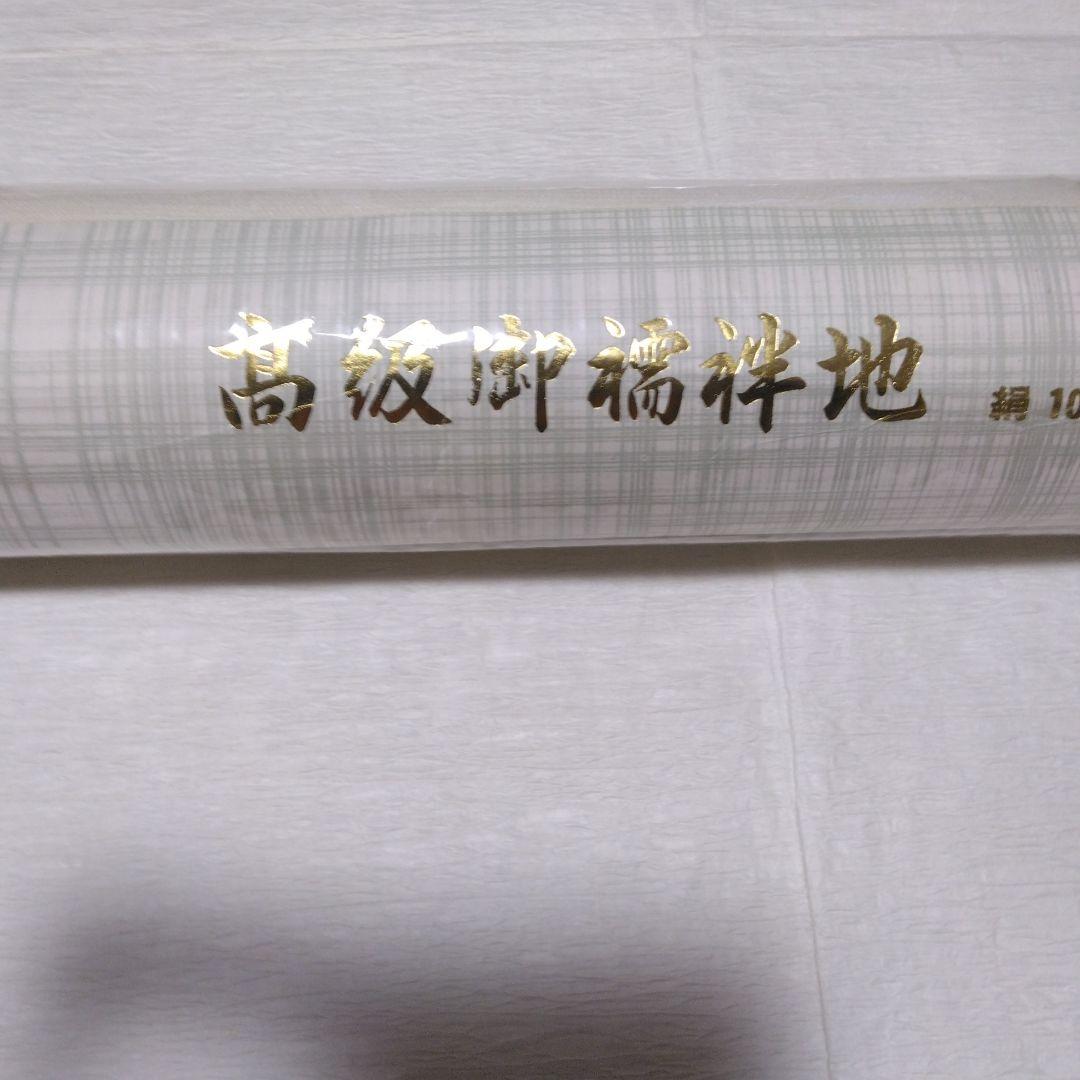 髙級御襦袢地 絹 10